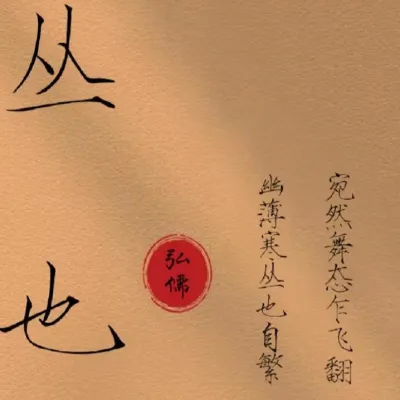 宛然舞态乍飞翻
幽薄寒丛也自繁
弘儒
丛也